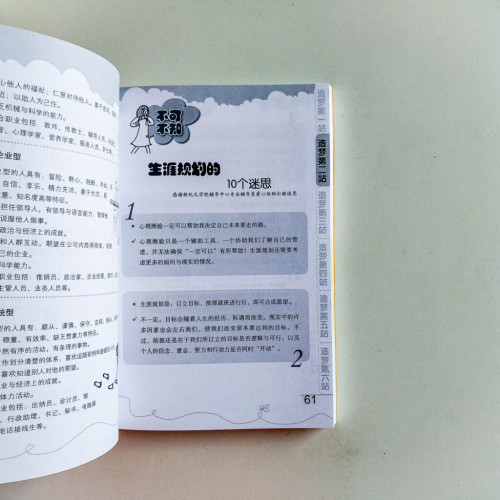 心他人的福祉，仁慈对待他人，善于
近，以助人为己任。
乏机械与科学的能力。
合职业包括：教师、传教士、辅导人员、社
者、心理学家、营养学家、服务人员、护士
企业型
型的人具有：冒险、野心、独断、
自信、享乐、精力充沛、善于社交、
意、知名度高等特征。
担任领导人，有领导与语言能力，
说服他人做事。
政治与经济上的成就。
和人群互动，期望在公司内居得高
己的企业。
科学能力。
职业包括：推销员、政治家、企业经理、
生管人员、业务人员等。
统型
型的人具有：顺从、谨慎、保守、自
稳重、有效率、缺乏想象力等特征。
然有序的活动，有条理的事物。
作划分清楚的体系，喜欢追随
喜欢知道别人对他的期望。
业与经济上的成就。
体力活动。
业包括：出纳员、会计员、银
行政助理、书记、秘书、电脑操
电话接线生等。
不可
不知
生涯规划的
10个迷思
1
心理测验一定可以帮助我决定自己未来要走的路。
心理测验只是一个辅助工具，一个协助我们了解自己的管
道，并无法确保“一定可以”有所帮助！生涯规划还需要考
虑更多的面向与现实的情况。
生涯规划是：订立目标，按部就班进行后，即可达成愿望。
不一定。目标会随着人生的经历、际遇而改变，现实中的许
多因素也会左右我们，使我们改变原本要达到的目标。不
过，前提还是在于我们所订立的目标是否逻辑与可行，以及
个人的信念、意志、努力和行动力是否同时“开动”。
2
61
造梦第一站
造梦第二站
造梦第三站
造梦第四站
造梦第五站
造梦第六站